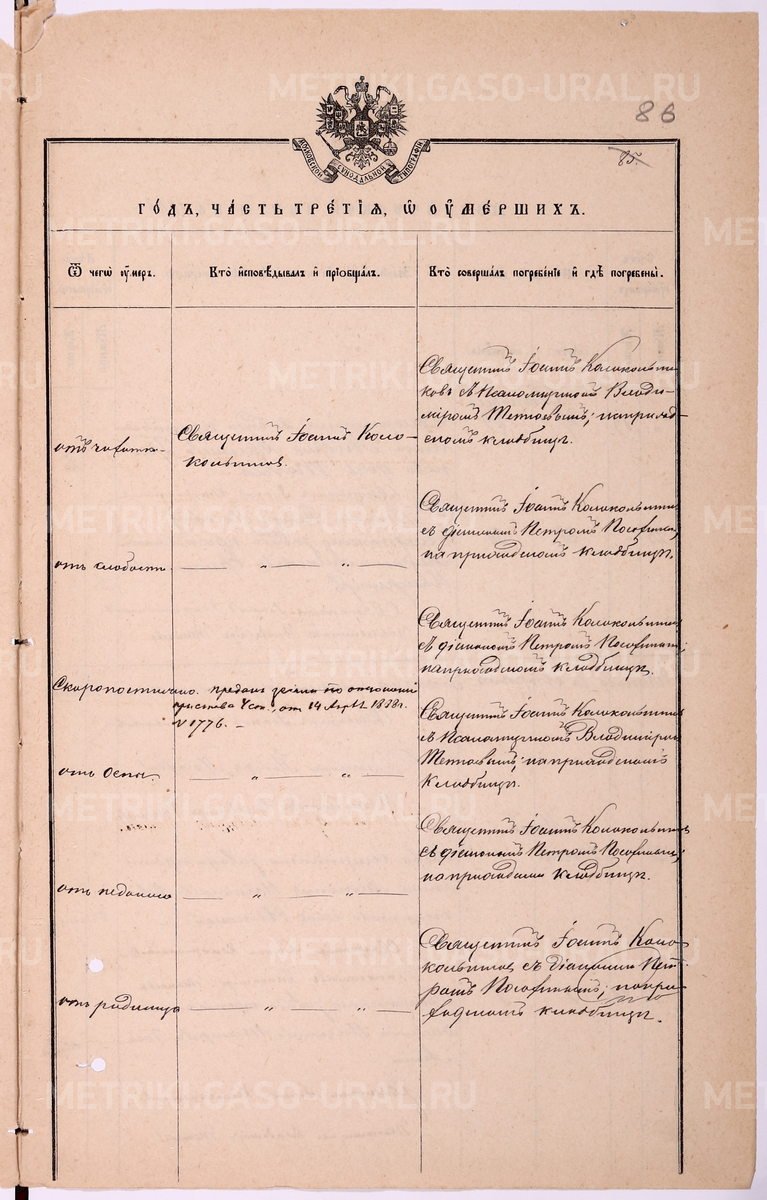 METRIKI.GASO-URAL.RU
86
85.
МОСКОВСКОЙ СѴНОДАЛЬНОЙ ТИПОГРАФІИ
ГО́ДЪ, ЧА́СТЬ ТРЕ́ТІѦ, Ѡ҆ ОУ҆МЕ́РШИХЪ.
Ѿ чегѡ̀ оу҆́меръ.
Кто̀ и҆сповѣ́дывалъ и҆ прїѡбща́лъ.
Кто̀ соверша́лъ погребе́нїе и҆ гдѣ̀ погребены̀.
отъ чахотки
Священникъ Іоаннъ Коло-
кольниковъ.
Священникъ Іоаннъ Колокольни-
ковъ съ Псаломщикомъ Влади-
міромъ; на приход-
скомъ кладбищѣ.
отъ слабости
— „ — „ —
Священникъ Іоаннъ Колокольников
съ діакономъ Петромъ
на приходскомъ кладбищѣ.
Скоропостижно. преданъ землѣ по отношенію
пристава 4 стан., отъ 14 Апр. 1888 г.
№ 1776. —
Священникъ Іоаннъ Колокольников
съ діакономъ Петромъ
на приходскомъ кладбищѣ.
отъ Оспы.
— „ — „ —
Священникъ Іоаннъ Колокольников
съ Псаломщикомъ Владиміром
на приходскомъ
кладбищѣ.
отъ
— „ — „ —
Священникъ Іоаннъ Колокольников
съ діакономъ Петромъ
на приходском кладбищѣ.
отъ родимца
— „ — „ —
Священникъ Іоаннъ Коло-
кольников съ Діакономъ Пет-
ромъ; на при-
ходскомъ кладбищѣ.